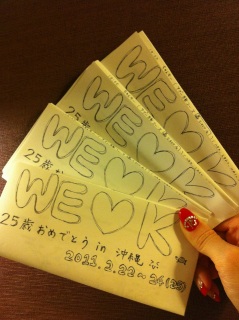 WE♡K
WE♡K
25歳
WE♡K
25歳 お
WE♡K
25歳 おめでとう in 沖縄
2011.2.22~24